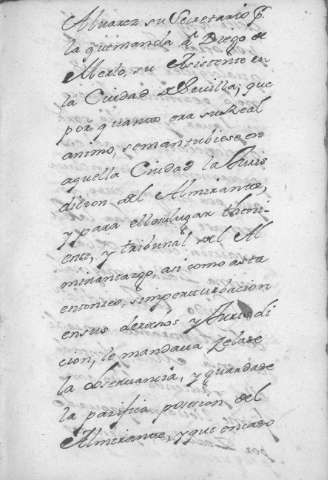 Alvarez su Secretario p.
la que manda a D. Diego de
Merlo, su Asistente en
la Ciudad de Sevilla, que
por quanto era su Real
animo, se mantubiese en
aquella Ciudad la Juris
dicion del Almirante,
y para ello lugar theni
ente, y tribunal del Al
mirantazgo, asi como asta
entonces, sin perturbacion
en sus derechos y Jurisdi
cion, le mandava zelase
la observancia, y guardase
la pazifica posesion del
Almirante, y que en caso